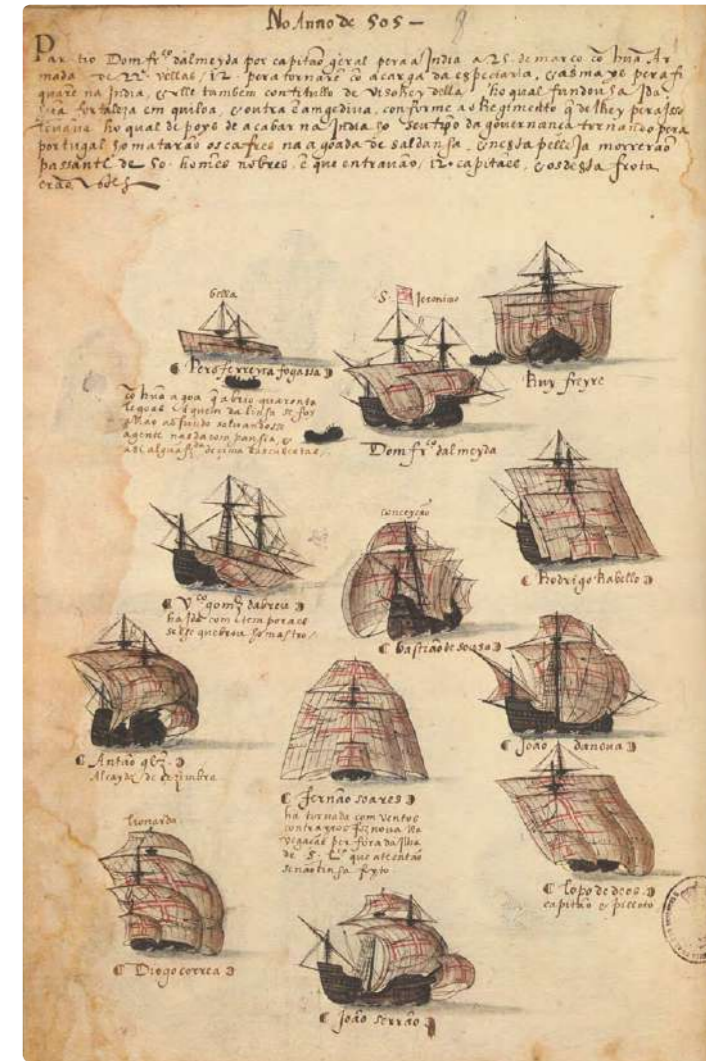 No Anno de 505 —
8
Partio Dom frco dalmeyda por capitão geral pera a India a 25 de março cõ hũa Ar
mada de 22 vellas / 12 pera tornarẽ cõ a carga da especiaria, & as mays pera fi
quarẽ na India, & elle tambem com titullo de Visorey della ho qual fundou sa Ida
hũa fortaleza em quiloa, & outra ẽ amgediva, conforme a o Regimento q̃ delRey pera Isso
levava ho qual de poys de acabar na India ho seu tẽpo da governança tornando pera
portugal ho matarão os cafres na agoada de saldanha, & nesta pelleja morrerão
passante de 50 homẽs nobres, ẽ que entravão / 12 capitães, & os desta frota
erão
bella
S. Jeronimo
Pero ferreira fogassa
Ruy freyre
cõ hũa agoa q̃ abrio quarenta
legoas quem da linha se foy
ao fundo salvandosse
a gente
Dom frco dalmeyda
conceyção
Rodrigo Rabello
Vco gomz dabreu
ha Ida com tempora
se lhe quebrou ho mastro /
bastião de sousa
Antão glz
Alcayde de cezimbra
João da nova
fernão soares
ha tornada com ventos
contrayros fez nova Na
vegação per fora da Ilha
de S. Lço que ate então
se não tinha feyto
lionarda
lopo de deos
capitão & pilloto
Diogo correa
João serrão